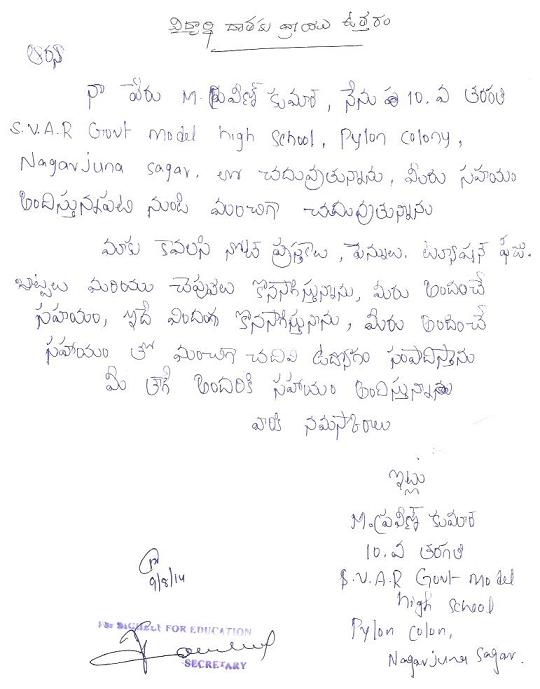 విద్యార్థి దాతకు వ్రాయు ఉత్తరం
నా పేరు M. ప్రవీణ్ కుమార్, నేను 10. వ తరగతి
S.V.A.R Govt model high school, Pylon colony,
Nagarjuna sagar, లో చదువుతున్నాను, మీరు సహయం
అందిస్తున్నపటి నుండి మంచిగా చదువుతున్నాను
మాకు కావలసి నోట్ పుస్తకాలు, పెన్నులు. ట్యూషన్ ఫీజు.
బట్టలు మరియు చెప్పులు కొనసాగిస్తున్నాను, మీరు అందించే
సహాయం, ఇదే విందంగ కొనసాగిస్తునాను, మీరు అందించే
సహాయం తో మంచిగ చదివి ఉద్యోగం సంపాదిస్తాను
మీ లాగే అందరికి సహాయం అందిస్తున్నాను
నమస్కారాలు
ఇట్లు
M. ప్రవీణ్ కుమార్
10. వ తరగతి
S.V.A.R Govt model
high school
Pylon colon,
Nagarjuna sagar.
9/8/14
FOR EDUCATION
SECRETARY